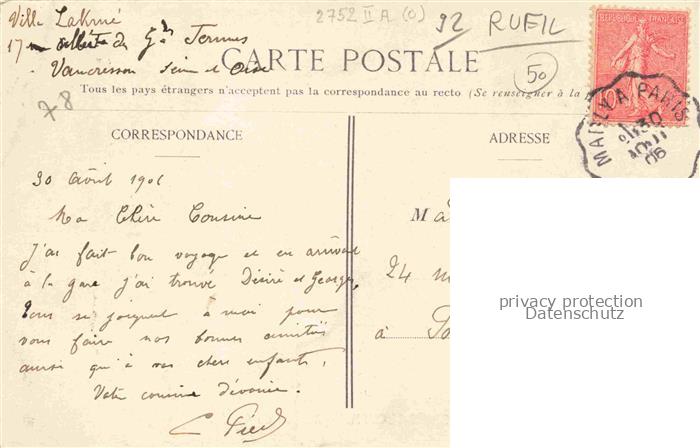 Villa Lakmé
17 des Gds Termes
Vaucresson Seine et Oise
2752 II A (0)
92 RUEIL
50
78
CARTE POSTALE
Tous les pays étrangers n'acceptent pas la correspondance au recto (Se renseigner à la
REPUBLIQUE FRANÇAISE
10
MARLY A PARIS
30
AOUT
06
CORRESPONDANCE
ADRESSE
30 Août 1906
Ma Chère Cousine
J'ai fait bon voyage et en arrivant
à la gare j'ai trouvé Désiré et Georges,
Tous se joignent à moi pour
vous faire nos bonnes amitiés
ainsi qu'à vos chers enfants.
Votre cousine dévouée.
M
24
à
privacy protection
Datenschutz